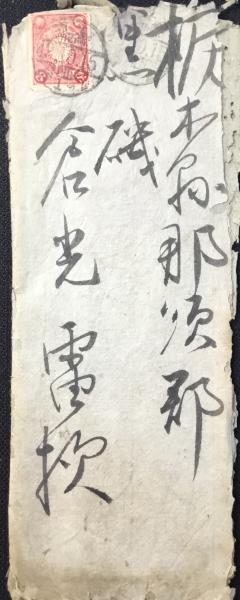 栃木縣那須郡
黒磯
倉光電揿